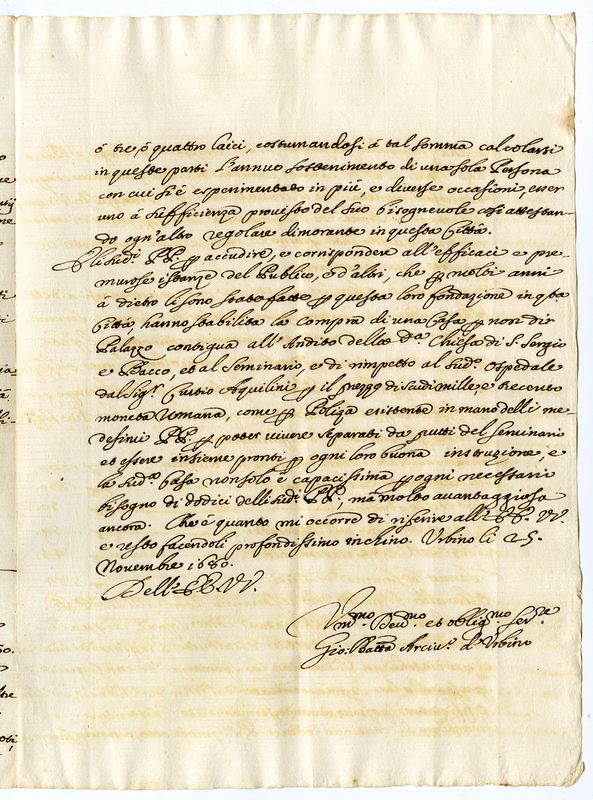 ó tre, ó quattro laici, costumandosi á tal somma calcolarsi
in queste parti l'annuo sostenimento di una sola Persona
con cui si é esperimentato in piú, e diverse occasioni esser
uno á sufficienza provisto del suo bisognevole così attestan-
do ogn'altro regolare dimorante in questa Città.
Gli sud.i PP. p accudire, e corrispondere all'efficaci e pre-
murose istanze del Publico, e d'altri, che p molti anni
á dietro li sono state fatte p questa loro fondazione in qta
Città, hanno stabilita la compra di una Casa p non dir
Palazzo contigua all'Andito della da Chiesa di S. Sergio
e Bacco, et al Seminario, e di rimpetto al sud.o Ospedale
dal Sig.r Curtio Aquilini p il prezzo di scudi mille e trecento
moneta Romana, come p Poliza esistente in mano delli me-
desimi PP. p poter vivere separati da putti del Seminario
et essere insieme pronti p ogni loro buona instruzione, e
la sud.a Casa non solo é capacissima p ogni necessario
bisogno di dodici delli sud.i PP., ma molto avantaggiosa
ancora. Che é quanto mi occorre di riferire all'EE. VV.
e resto facendoli profondissimo inchino. Urbino li 25.
Novembre 1680.
Dell'EE. VV.
Um.mo Dev.mo et oblig.mo Ser.re
Gio: Batta Arciv.o d'Urbino